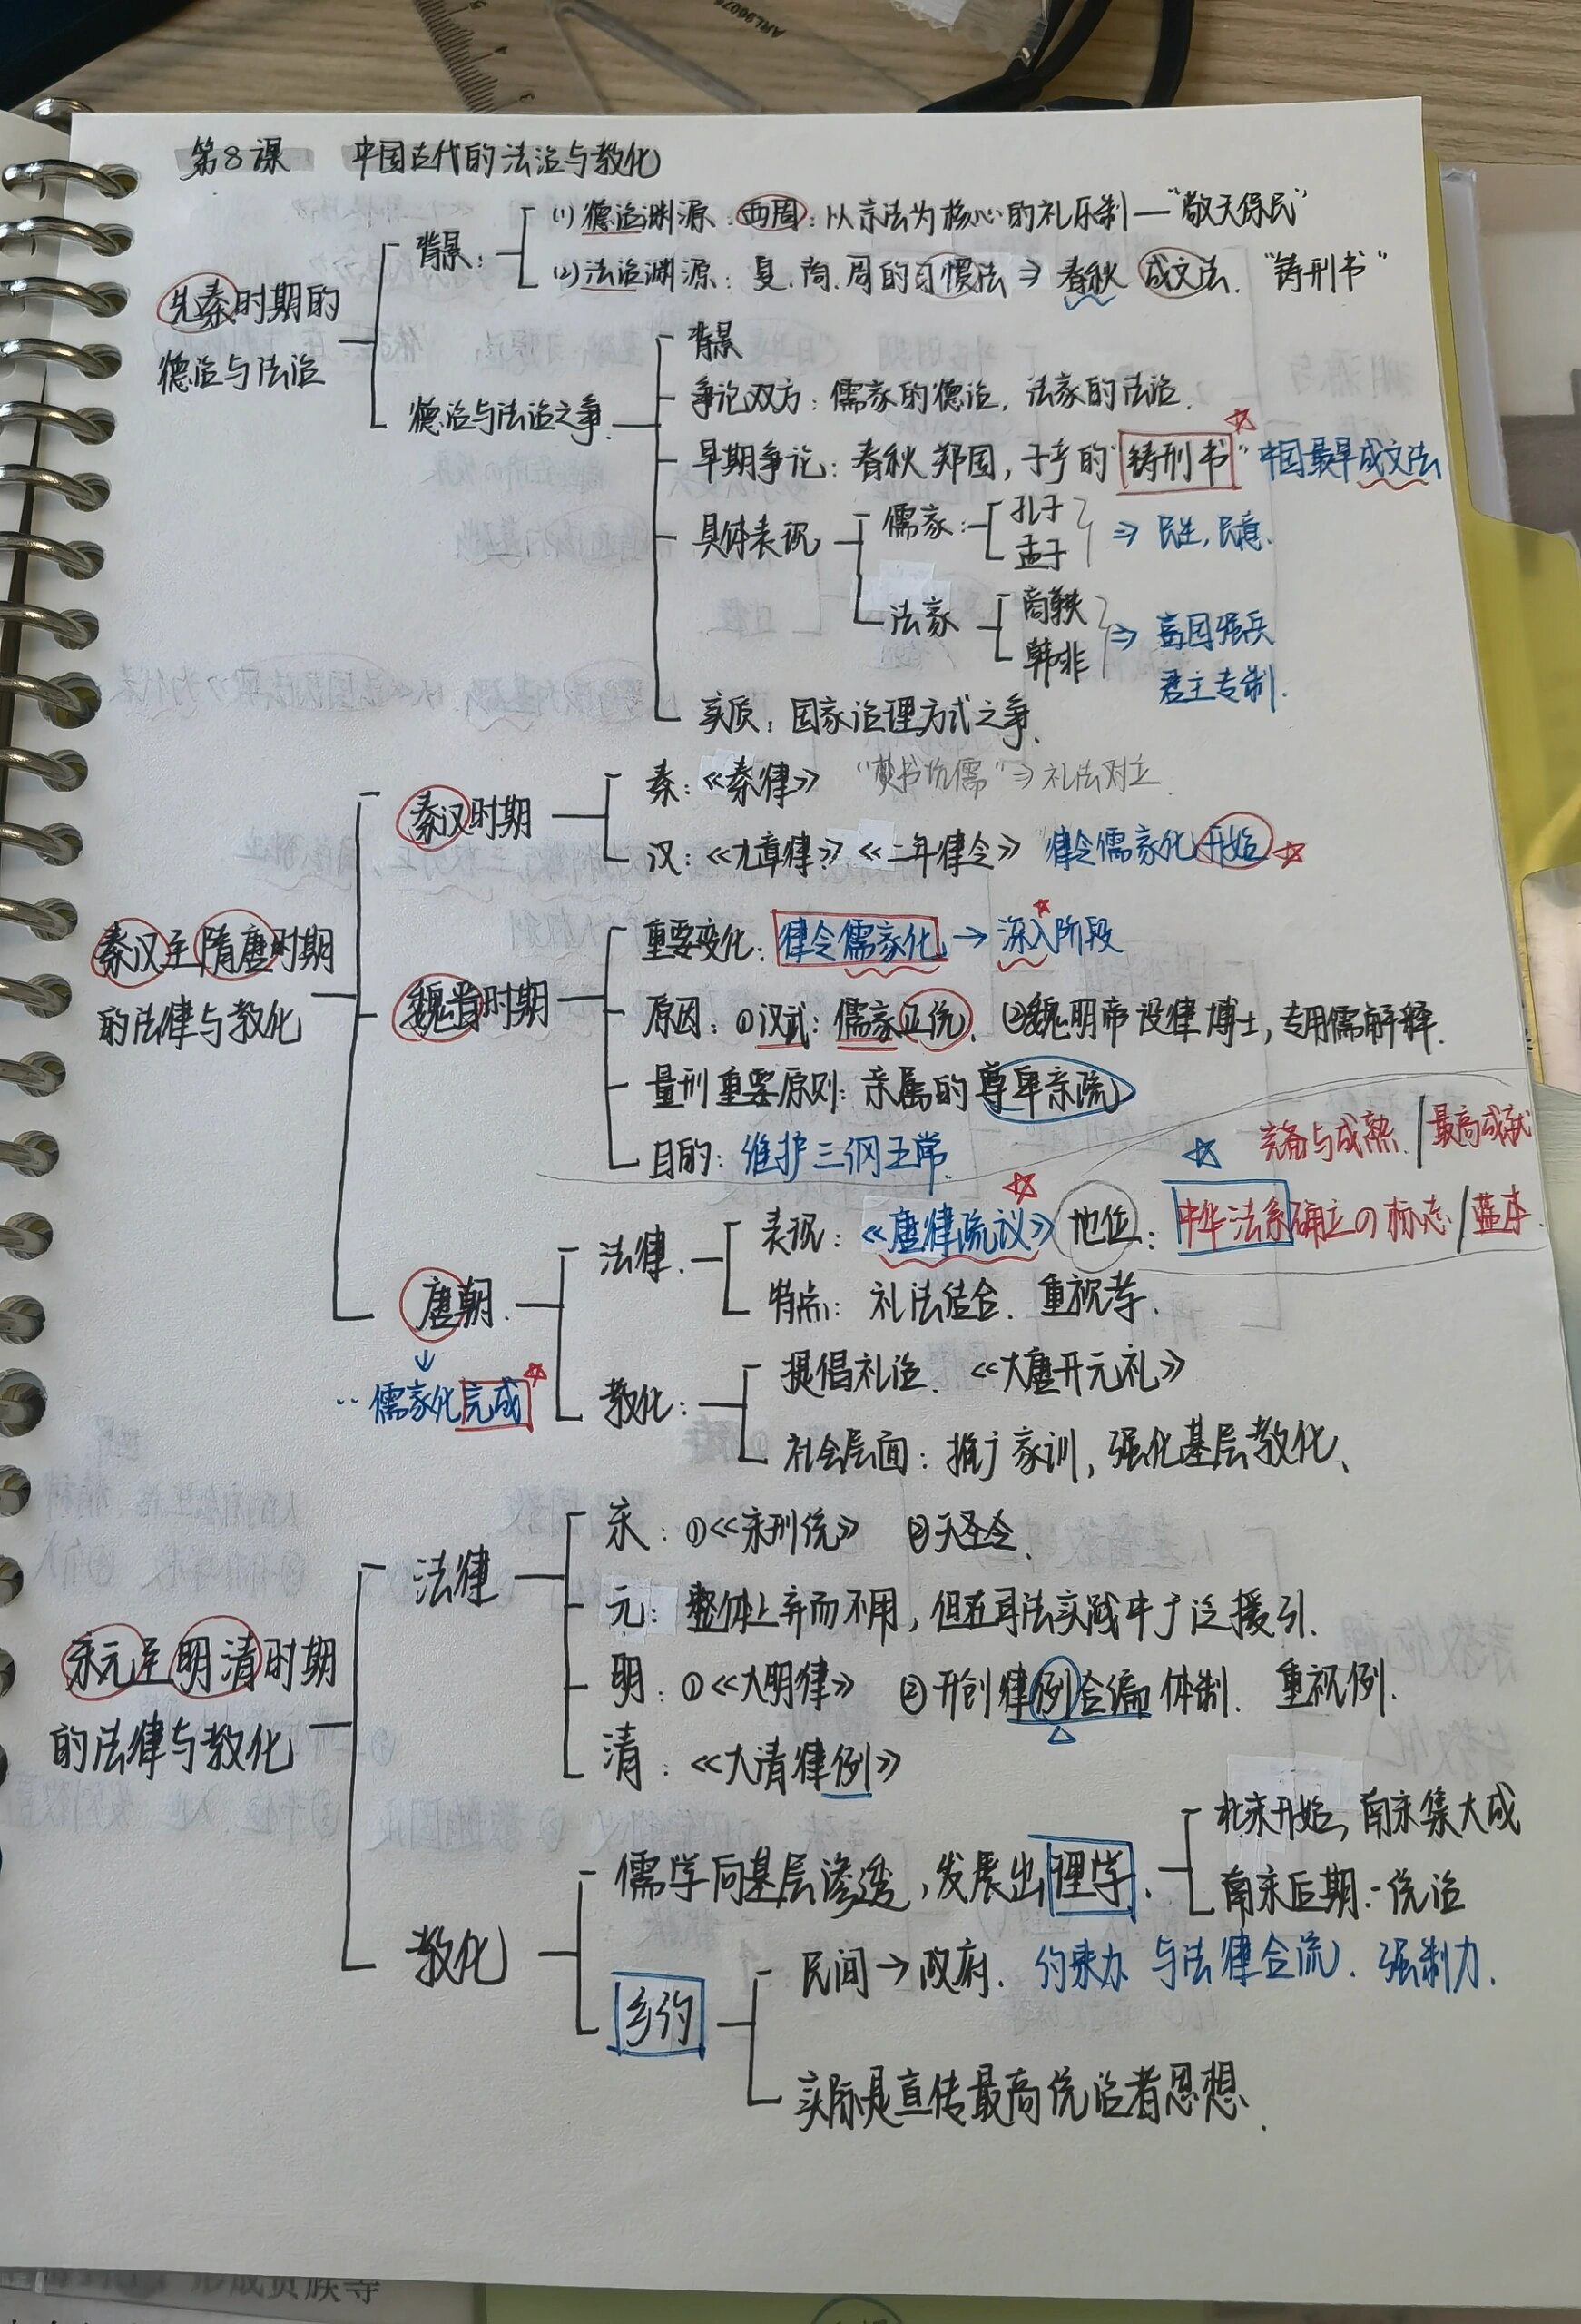 第8课 中国古代的法治与教化
先秦时期的
德治与法治
背景:
(1) 德治渊源:西周:以宗法为核心的礼乐制—“敬天保民”
(2) 法治渊源:夏.商.周的习惯法⇒春秋 成文法.“铸刑书”
德治与法治之争
背景
争论双方:儒家的德治,法家的法治.
早期争论:春秋郑国,子产的“铸刑书”中国最早成文法
具体表现
儒家:
孔子
孟子
⇒民生,民意.
法家
商鞅
韩非
⇒富国强兵
君主专制.
实质:国家治理方式之争.
秦汉至隋唐时期
的法律与教化
秦汉时期
秦:《秦律》 “焚书坑儒”⇒礼法对立
汉:《九章律》《二年律令》 律令儒家化开始☆
魏晋时期
重要变化:律令儒家化→深入阶段
原因:①汉武:儒家正统. ②魏明帝设律博士,专用儒解释.
量刑重要原则:亲属的尊卑亲疏
目的:维护三纲五常.
唐朝.
↓
..儒家化完成☆
法律.
表现:《唐律疏议》☆ 地位:中华法系确立の标志/蓝本.
☆ 完备与成熟./最高成就
特点:礼法结合.重视孝.
教化:
提倡礼治.《大唐开元礼》
社会层面:推广家训,强化基层教化、
宋元至明清时期
的法律与教化
法律
宋:①《宋刑统》 ②天圣令.
元:整体上弃而不用,但在司法实践中广泛援引.
明:①《大明律》 ②开创律例合编体制. 重视例.
清:《大清律例》
教化
儒学向基层渗透,发展出理学.
北宋开始,南宋集大成
南宋后期.-统治
乡约
民间→政府. 约束力 与法律合流. 强制力.
实际是宣传最高统治者思想.
形成贵族等